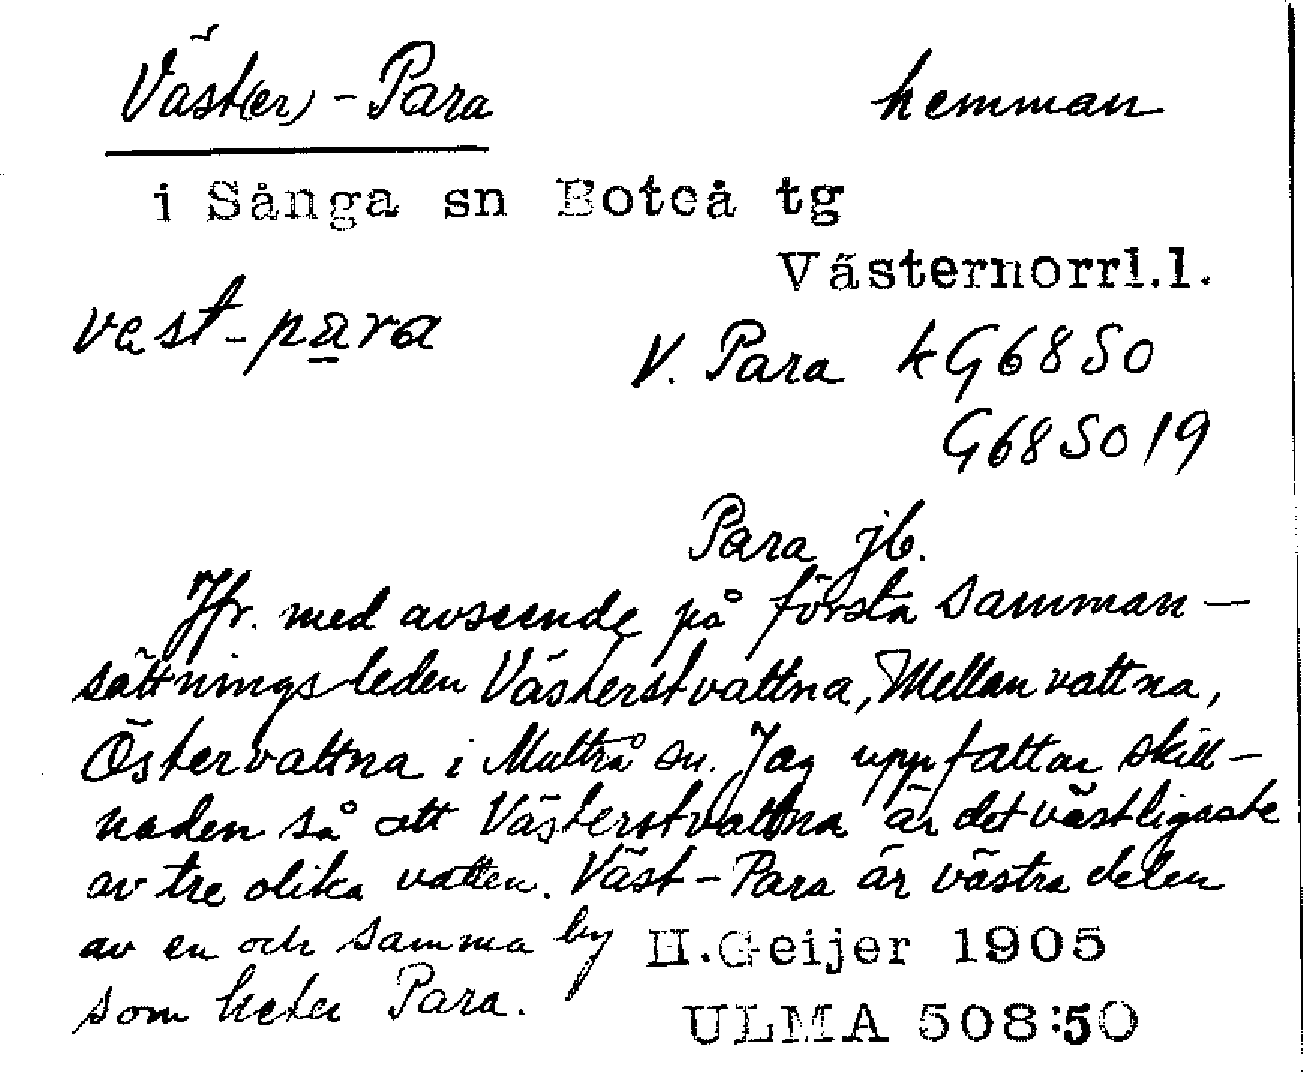 Väst(er)-Para hemman
i Sånga sn Boteå tg
Västernorrl.l.
vest-para
V. Para kG68SO
G68SO19
Para jb.
Jfr. med avseende på första samman-
sättningsleden Västerstvattna, Mellanvattna,
Östervattna i Multrå sn. Jag uppfattar skill-
naden så att Västerstvattna är det västligaste
av tre olika vatten. Väst-Para är västra delen
av en och samma by
som heter Para.
H.Geijer 1905
ULMA 508:50